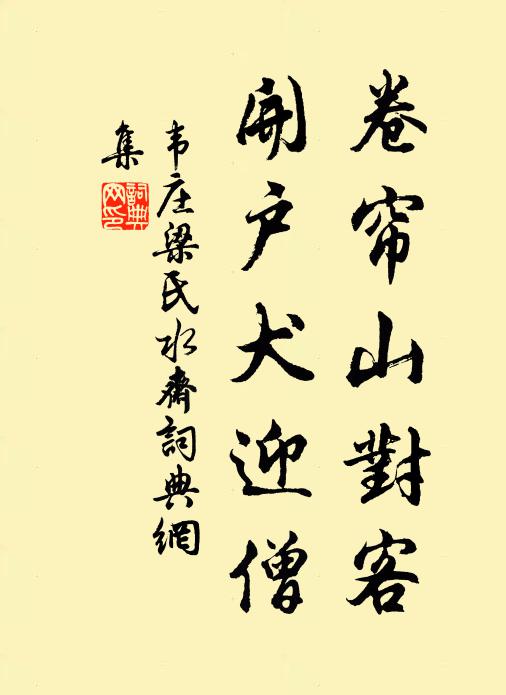 卷帘山對客
開户犬迎僧
韦庄梁氏水齋詞典網
集
詞典网印